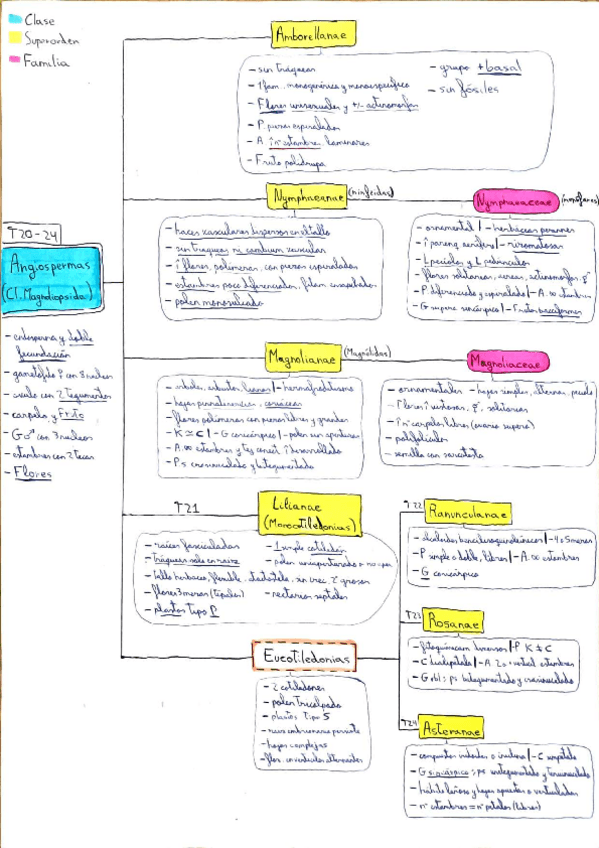 Clase
Superorden
Familia
Amborellanae
- sin tráqueas
- 1 fam. monogenérica y monoespecífica
- Flores unisexuales y +/- actinomorfas
- P. piezas espiraladas
- A ↑ nº estambres laminares
- Fruto polidrupa
- grupo + basal
- sin fósiles
Nymphaeanae (ninfeidas)
- haces vasculares dispersos en el tallo
- sin tráqueas ni cambium vascular
- ↑ flores, polímeras, con piezas espiraladas
- estambres poco diferenciados, filam.
- polen monosulcado
Nymphaeaceae
- ornamental / - herbáceas perennes
- ↑ parénq aerífero / - rizomatosas
- L peciolos y L pedúnculos
- flores solitarias, aéreas, actinomorfas, ☿
- P. diferenciado y espiralado / - A. ∞ estambres
- G súpero sincárpico / - Frutos bacciformes
T20-24
Angiospermas
(Cl. Magnoliopsida)
- endosperma y doble
fecundación
- gametofito ♀ con 8 núcleos
- óvulo con 2 tegumentos
- carpelo y Fruto
- G♂ con 3 núcleos
- estambres con 2 tecas
- Flores
Magnolianae (Magnólidas)
- árboles, arbustos, lianas / - hermafroditismo
- hojas persistentes, coriáceas
- flores polímeras con piezas libres y grandes
- K ≃ C / - G conicárpico / - polen sin aperturas
- A. ∞ estambres y tej. conect. ↑ desarrollado
- PS crasinucelado y bitegumentado
Magnoliaceae
- ornamentales - hojas simples, alternas, peciolo
- Flores ↑ vistosas, ☿, solitarias
- ↑ nº carpelos libres (ovario súpero)
- polifolículo
- semilla con sarcotesta
T21
Lilianae
(Monocotiledóneas)
- raíces fasciculadas
- tráqueas solo en raíz
- tallo herbáceo, flexible, sin crec. 2º grosor
- flores 3meros (tépalos)
- plastos tipo P
- 1 simple cotiledón
- polen uniaperturado o no aper
- nectarios septales
Eucotiledonias
- 2 cotiledones
- polen tricolpado
- plastos tipo S
- raíz embrionaria persiste
- hojas complejas
- flor. en verticilos alternantes
T22
Ranunculanae
- alcaloides bencilisoquinoleínicos / - 4 o 5 meros
- P simple o doble, libres / - A. ∞ estambres
- G conicárpico
T23
Rosanae
- fitoquímicam diversos / - P K ≠ C
- C dialipétala / - A 2 o + verticil estambres
- G obl; ps bitegumentado y crasinucelado
T24
Asteranae
- compuestos iridoides o inulina / - C simpétala
- G sincárpico; ps unitegumentado y tenuinucelado
- hábito leñoso y hojas opuestas o verticiladas
- nº estambres = nº pétalos (libres)